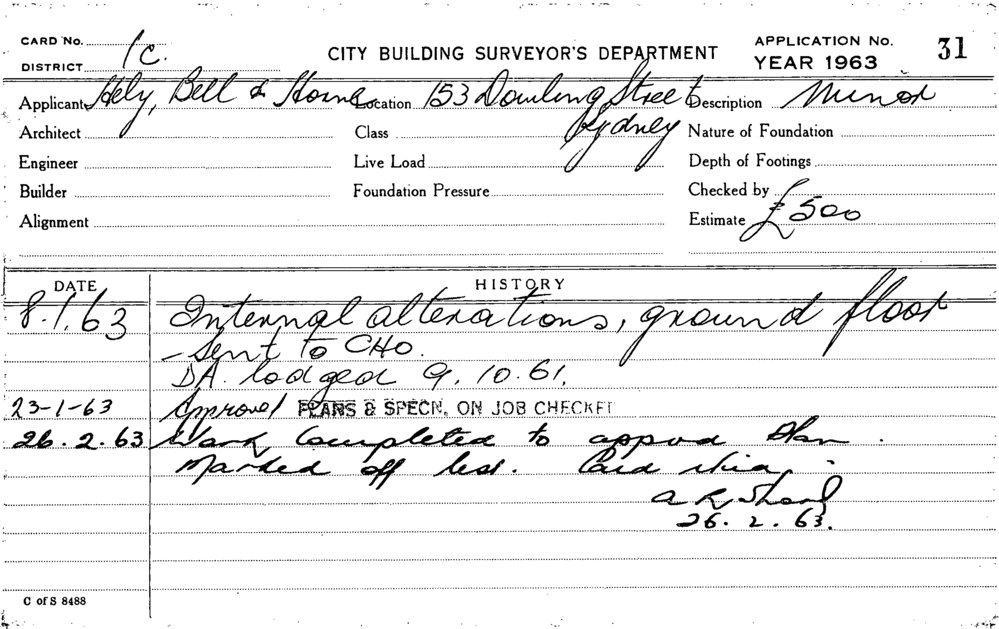 CARD No.
DISTRICT 1C.
CITY BUILDING SURVEYOR'S DEPARTMENT
APPLICATION No. 31
YEAR 1963
Applicant Hely, Bell & Horne Location 153 Dowling Street Description Minor
Sydney
Architect Class Nature of Foundation
Engineer Live Load Depth of Footings
Builder Foundation Pressure Checked by
Alignment Estimate £500
DATE HISTORY
8.1.63 Internal alterations, ground floor
- Sent to CHO.
DA. lodged 9.10.61.
23-1-63 Approval PLANS & SPECN. ON JOB CHECKED
26.2.63 Work Completed to approd Plan.
Marked off list. Card
26.2.63.
C of S 8488